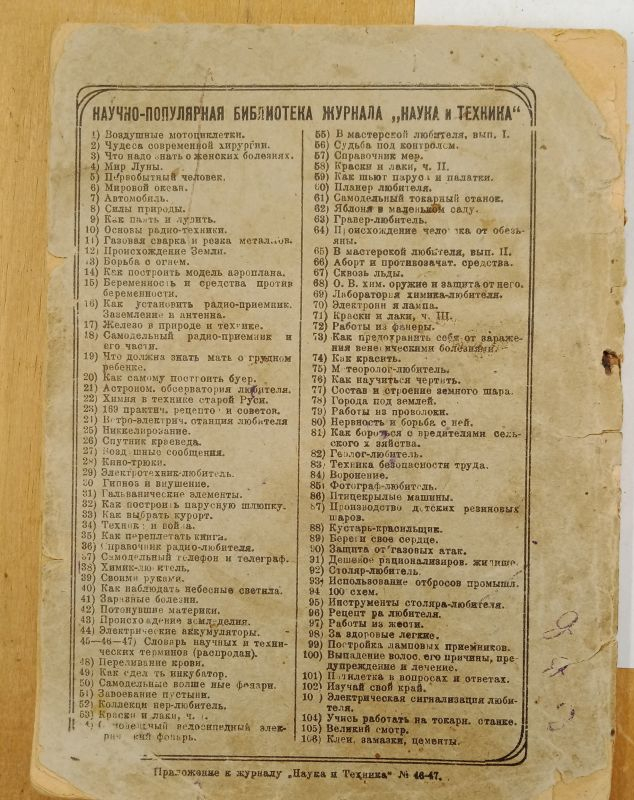 НАУЧНО-ПОПУЛЯРНАЯ БИБЛИОТЕКА ЖУРНАЛА „НАУКА и ТЕХНИКА“
1) Воздушные мотоциклетки.
2) Чудеса современной хирургии.
3) Что надо знать о женских болезнях.
4) Мир Луны.
5) Первобытный человек.
6) Мировой океан.
7) Автомобиль.
8) Силы природы.
9) Как паять и лудить.
10) Основы радио-техники.
11) Газовая сварка и резка металлов.
12) Происхождение Земли.
13) Борьба с огнем.
14) Как построить модель аэроплана.
15) Беременность и средства против
беременности.
16) Как установить радио-приемник.
Заземление и антенна.
17) Железо в природе и технике.
18) Самодельный радио-приемник и
его части.
19) Что должна знать мать о грудном
ребенке.
20) Как самому построить буер.
21) Астроном. обсерватория любителя.
22) Химия в технике старой Руси.
23) 169 практич. рецептов и советов.
24) Ветро-электрич. станция любителя
25) Никкелирование.
26) Спутник краеведа.
27) Воздушные сообщения.
28) Кино-трюки.
29) Электротехник-любитель.
30 Гипноз и внушение.
31) Гальванические элементы.
32) Как построить парусную шлюпку.
33) Как выбрать курорт.
34) Техника и война.
35) Как переплетать книги.
36) Справочник радио-любителя.
37) Самодельный телефон и телеграф.
38) Химик-любитель.
39) Своими руками.
40) Как наблюдать небесные светила.
41) Заразные болезни.
42) Потонувшие материки.
43) Происхождение земледелия.
44) Электрические аккумуляторы.
45—46—47) Словарь научных и техни-
ческих терминов (распродан).
48) Переливание крови.
49) Как сделать инкубатор.
50) Самодельные волшебные фонари.
51) Завоевание пустыни.
52) Коллекционер-любитель.
53) Краски и лаки, ч.
велосипедный элек-
фонарь.
55) В мастерской любителя, вып. I.
56) Судьба под контролем.
57) Справочник мер.
58) Краски и лаки, ч. II.
59) Как шьют паруса и палатки.
60) Планер любителя.
61) Самодельный токарный станок.
62) Яблоня в маленьком саду.
63) Гравер-любитель.
64) Происхождение человека от обезь-
яны.
65) В мастерской любителя, вып. II.
66) Аборт и противозачат. средства.
67) Сквозь льды.
68) О. В. хим. оружие и защита от него.
69) Лаборатория химика-любителя.
70) Электронная лампа.
71) Краски и лаки, ч. III.
72) Работы из фанеры.
73) Как предохранить себя от зараже-
ния венерическими болезнями.
74) Как красить.
75) Метеоролог-любитель.
76) Как научиться чертить.
77) Состав и строение земного шара.
78) Города под землей.
79) Работы из проволоки.
80) Нервность и борьба с ней.
81) Как бороться с вредителями сель-
ского хозяйства.
82) Геолог-любитель.
83) Техника безопасности труда.
84) Воронение.
85) Фотограф-любитель.
86) Птицекрылые машины.
87) Производство детских резиновых
шаров.
88) Кустарь-красильщик.
89) Береги свое сердце.
90) Защита от газовых атак.
91) Дешевое рационализиров. жилище.
92) Столяр-любитель.
93) Использование отбросов промышл.
94 100 схем.
95) Инструменты столяра-любителя.
96) Рецептура любителя.
97) Работы из жести.
98) За здоровые легкие.
99) Постройка ламповых приемников.
100) Выпадение волос, его причины, пре-
дупреждение и лечение.
101) Пятилетка в вопросах и ответах.
102) Изучай свой край.
10 ) Электрическая сигнализация люби-
теля.
104) Учись работать на токарн. станке.
105) Великий смотр.
106) Клеи, замазки, цементы.
Приложение к журналу „Наука и Техника“ № 46-47.